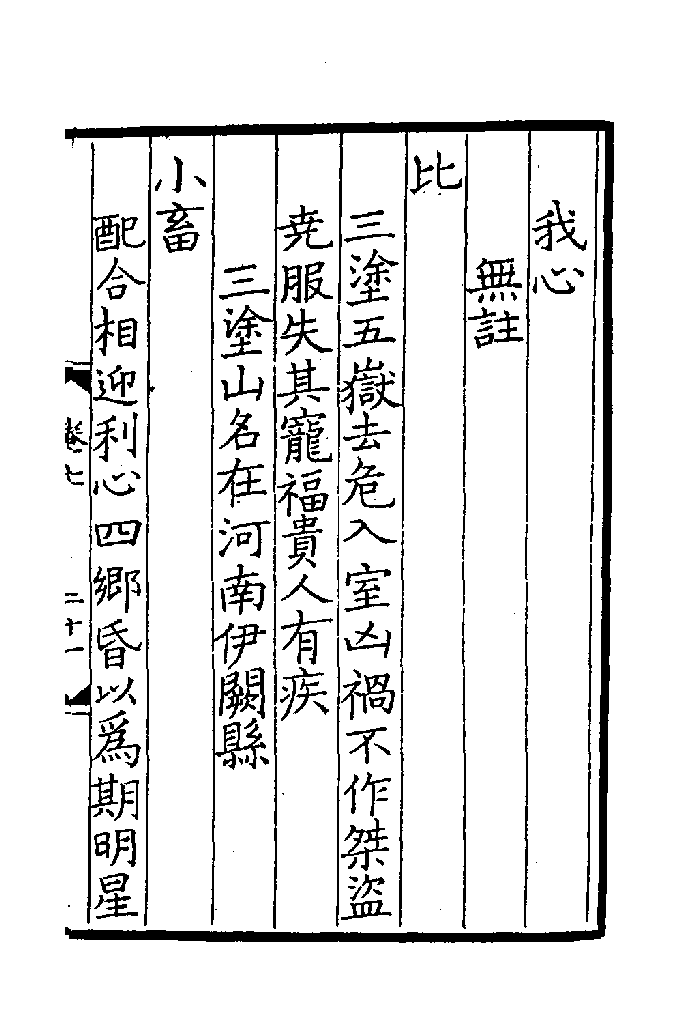 我心
無註
比
三塗五嶽去危入室凶禍不作桀盜
尭服失其寵福貴人有疾
三塗山名在河南伊闕縣
小畜
配合相迎利心四鄉昏以爲期明星
卷七
二十一